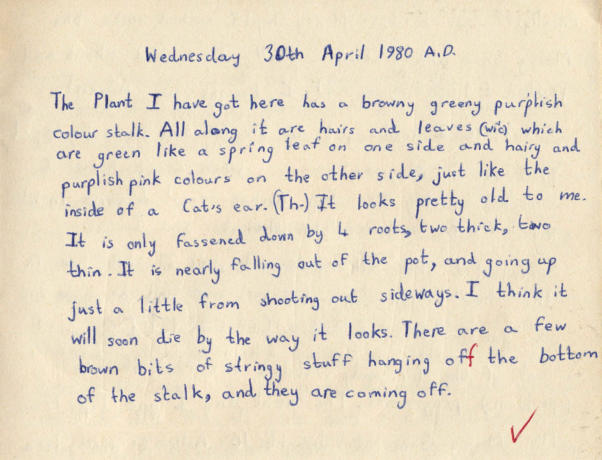 Wednesday 30th April 1980 A.D.
The Plant I have got here has a browny greeny purplish
colour stalk. All along it are hairs and leaves (wic) which
are green like a spring leaf on one side and hairy and
purplish pink colours on the other side, just like the
inside of a Cat's ear. (Th-) It looks pretty old to me.
It is only fassened down by 4 roots, two thick, two
thin. It is nearly falling out of the pot, and going up
just a little from shooting out sideways. I think it
will soon die by the way it looks. There are a few
brown bits of stringy stuff hanging off the bottom
of the stalk, and they are coming off.